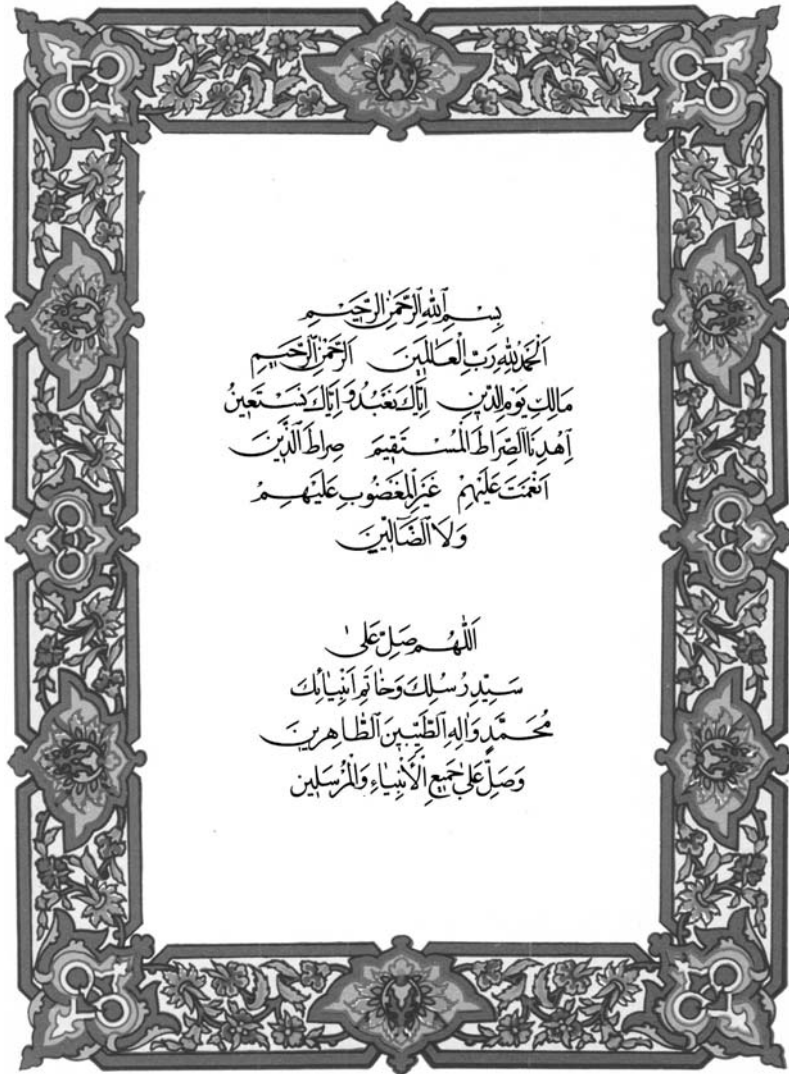 بِسْمِ ٱللهِ ٱلرَّحْمٰنِ ٱلرَّحِيمِ
اَلْحَمْدُ لِلّٰهِ رَبِّ ٱلْعَالَمِينَ اَلرَّحْمٰنِ ٱلرَّحِيمِ
مَالِكِ يَوْمِ ٱلدِّينِ اِيَّاكَ نَعْبُدُ وَ اِيَّاكَ نَسْتَعِينُ
اِهْدِنَا ٱلصِّرَاطَ ٱلْمُسْتَقِيمَ صِرَاطَ ٱلَّذِينَ
اَنْعَمْتَ عَلَيْهِمْ غَيْرِ ٱلْمَغْضُوبِ عَلَيْهِمْ
وَلَا ٱلضَّالِّينَ
اَللّٰهُمَّ صَلِّ عَلىٰ
سَيِّدِ رُسُلِكَ وَخَاتَمِ اَنْبِيَائِكَ
مُحَمَّدٍ وَاٰلِهِ ٱلطَّيِّبِينَ ٱلطَّاهِرِينَ
وَصَلِّ عَلىٰ جَمِيعِ ٱلْأَنْبِيَاءِ وَٱلْمُرْسَلِين